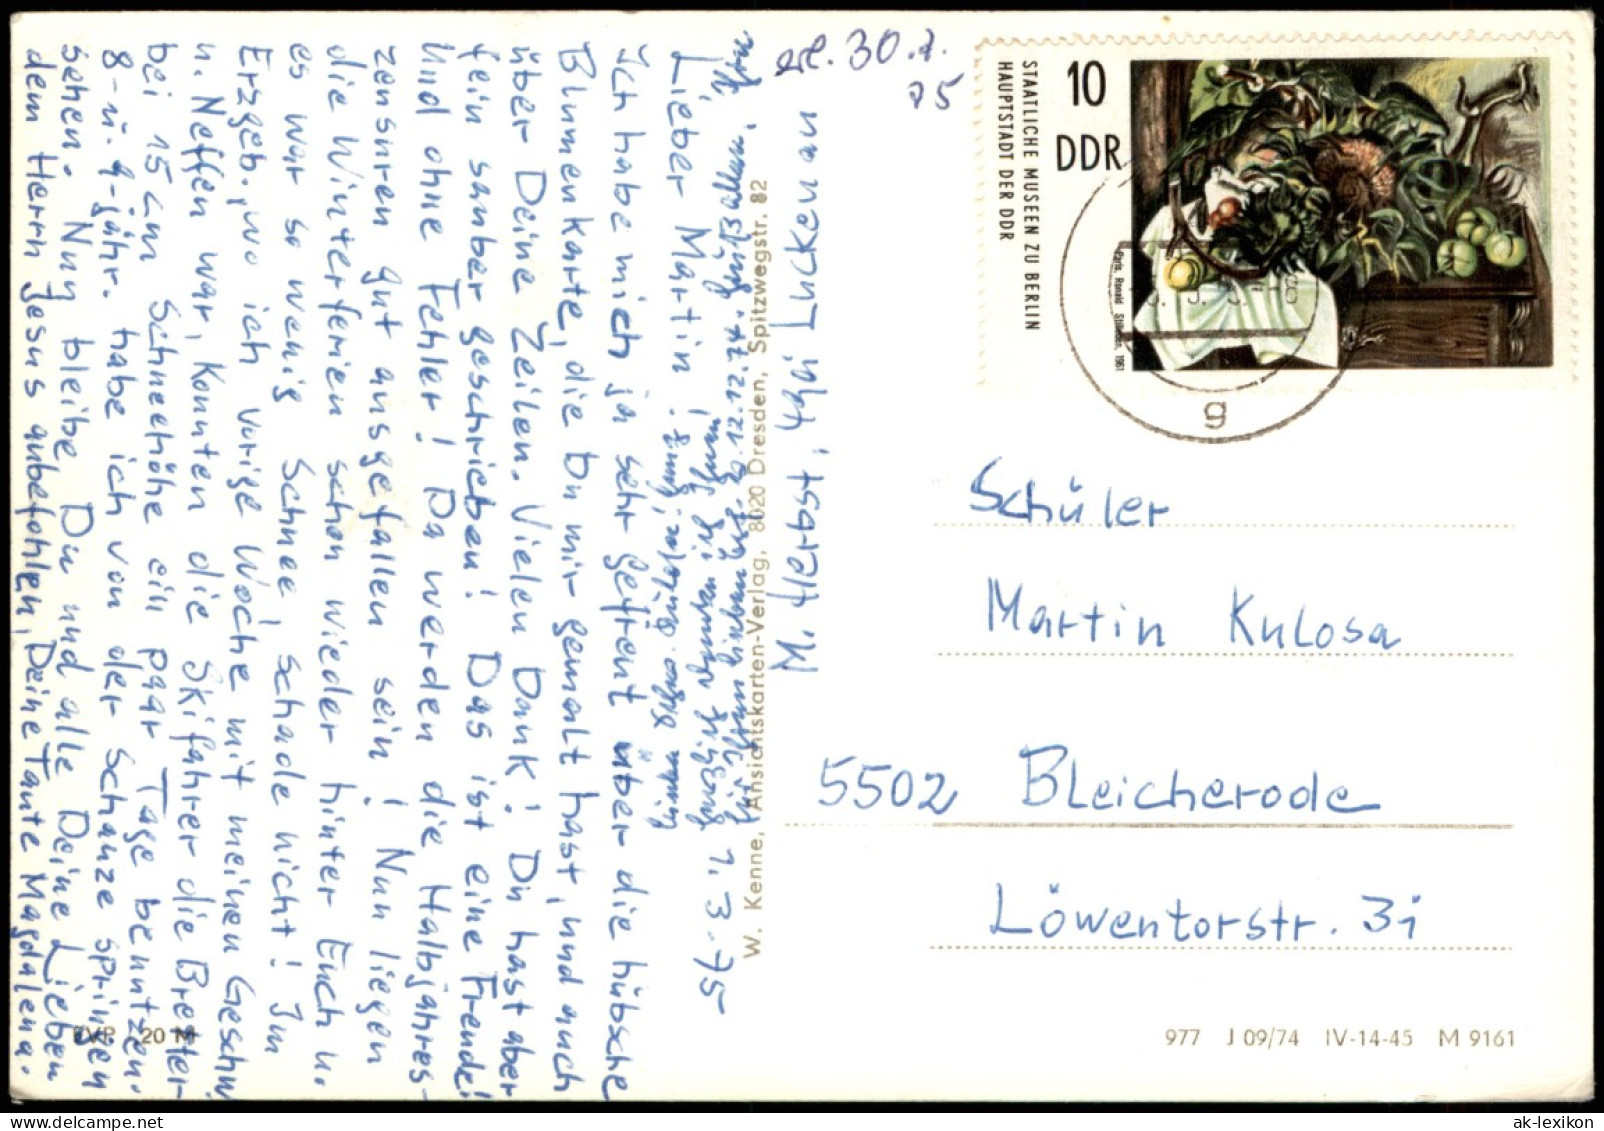 erl. 30.7.
75
STAATLICHE MUSEEN ZU BERLIN
HAUPTSTADT DER DDR
10
DDR
g
M. Herbst, 4791 Luckenau
W. Kenne, Ansichtskarten-Verlag, 8020 Dresden, Spitzwegstr. 82
1.3.75
Lieber Martin!
Ich habe mich ja sehr gefreut über die hübsche
Blumenkarte, die Du mir gemalt hast, und auch
über Deine Zeilen. Vielen Dank! Du hast aber
fein sauber geschrieben! Das ist eine Freude!
Und ohne Fehler! Da werden die Halbjahres-
zensuren gut ausgefallen sein! Nun liegen
die Winterferien schon wieder hinter Euch u.
es war so wenig Schnee, schade nicht! Im
Erzgeb., wo ich vorige Woche mit meinen Geschw.
u. Neffen war, konnten die Skifahrer die Bretter
bei 15 cm Schneehöhe ein paar Tage benutzen.
8- u. 9-jähr. habe ich von der Schanze springen
sehen. Nun bleibe, Du und alle Deine Lieben
dem Herrn Jesus anbefohlen, Deine Tante Magdalena.
Schüler
Martin Kulosa
5502 Bleicherode
Löwentorstr. 31
EVP 20 M
977 J 09/74 IV-14-45 M 9161
ak-lexikon